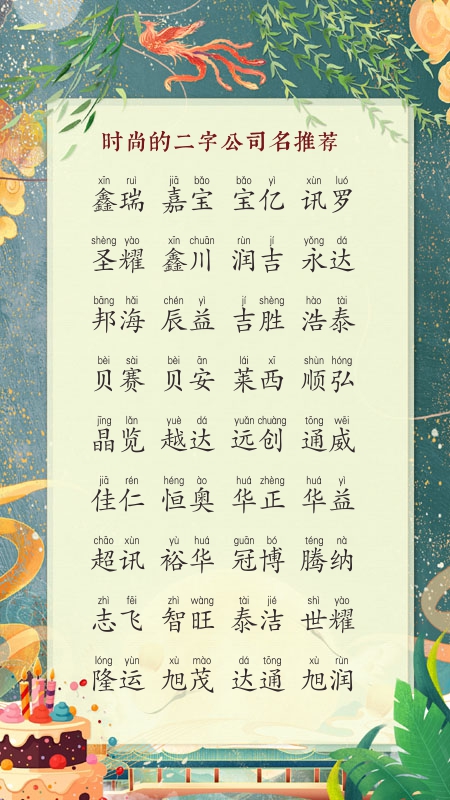 时尚的二字公司名推荐
xīn ruì jiā bǎo bǎo yì xùn luó
鑫瑞 嘉宝 宝亿 讯罗
shèng yào xīn chuān rùn jí yǒng dá
圣耀 鑫川 润吉 永达
bāng hǎi chén yì jí shèng hào tài
邦海 辰益 吉胜 浩泰
bèi sài bèi ān lái xī shùn hóng
贝赛 贝安 莱西 顺弘
jīng lǎn yuè dá yuǎn chuàng tōng wēi
晶览 越达 远创 通威
jiā rén héng ào huá zhèng huá yì
佳仁 恒奥 华正 华益
chāo xùn yù huá guān bó téng nà
超讯 裕华 冠博 腾纳
zhì fēi zhì wàng tài jié shì yào
志飞 智旺 泰洁 世耀
lóng yùn xù mào dá tōng xù rùn
隆运 旭茂 达通 旭润